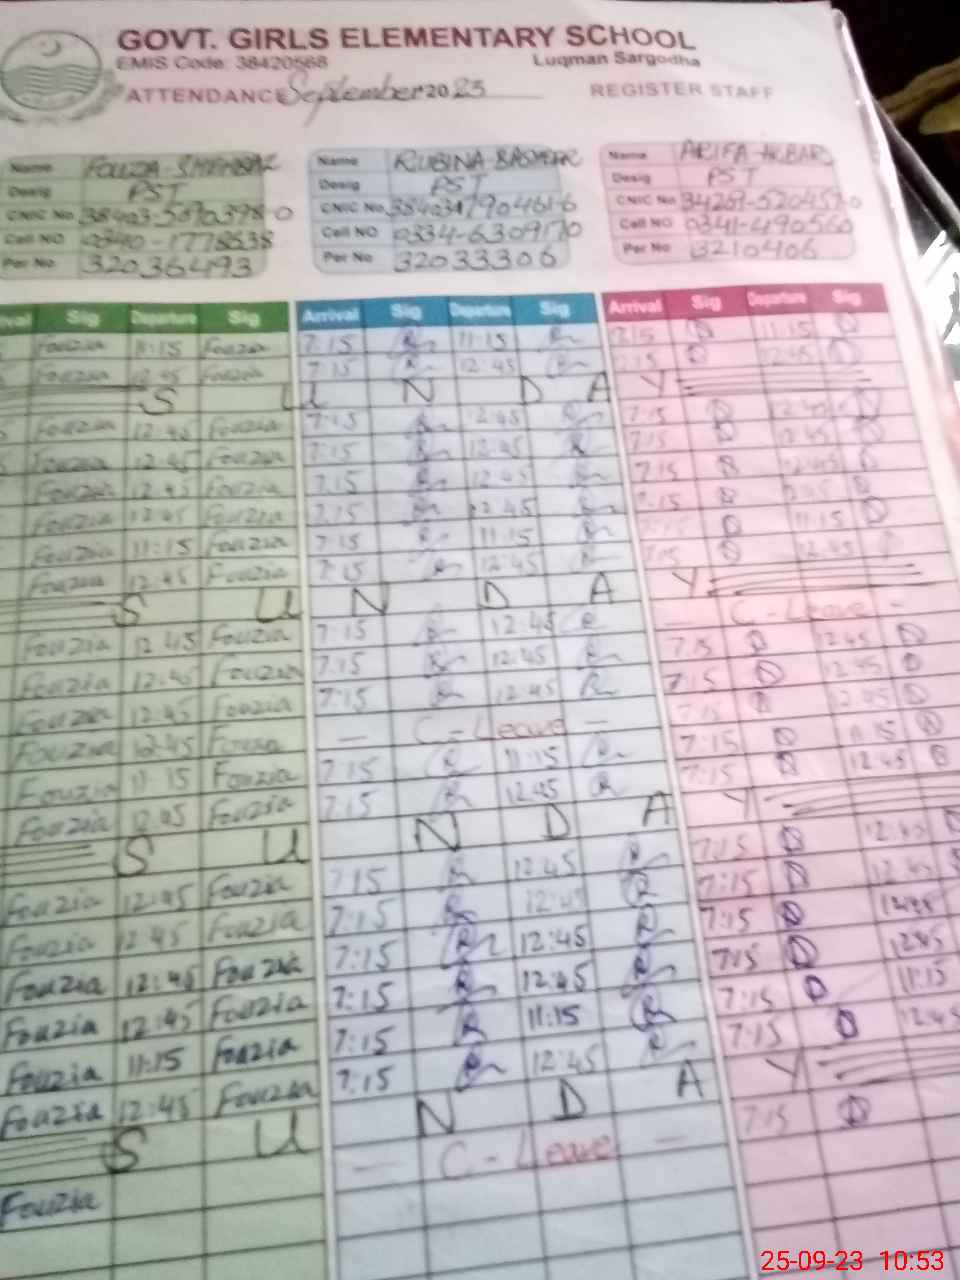 GOVT. GIRLS ELEMENTARY SCHOOL
EMIS Code: 38420568 Luqman Sargodha
ATTENDANCE September 2023 REGISTER STAFF
Name FOUZIA SHAHBAZ Name RUBINA BASHEER Name ARIFA AKBAR
Desig PST Desig PST Desig PST
CNIC No. CNIC No. CNIC No.
Cell NO 0340-1778538 Cell NO 0334-6309170 Cell NO 0341-490560
Per No 32036493 Per No 32033306 Per No 3210406
Sig Departure Sig Arrival Sig Departure Sig Arrival Sig Departure Sig
Fouzia 11:15 Fouzia 7:15 11:15 7:15 11:15
Fouzia 12:45 Fouzia 7:15 12:45 7:15 12:45
S U N D A Y
Fouzia 12:45 Fouzia 7:15 12:45 7:15 12:45
Fouzia 12:45 Fouzia 7:15 12:45 7:15 12:45
Fouzia 12:45 Fouzia 7:15 12:45 7:15 12:45
Fouzia 12:45 Fouzia 7:15 12:45 7:15 12:45
Fouzia 11:15 Fouzia 7:15 11:15 11:15
Fouzia 12:45 Fouzia 7:15 12:45 7:15 12:45
S U N D A Y
Fouzia 12:45 Fouzia 7:15 12:45 C-Leave
Fouzia 12:45 Fouzia 7:15 12:45 7:15 12:45
Fouzia 12:45 Fouzia 7:15 12:45 7:15 12:45
Fouzia 12:45 Fouzia C-Leave 7:15 12:45
Fouzia 11:15 Fouzia 7:15 11:15 7:15 11:15
Fouzia 12:45 Fouzia 7:15 12:45 7:15 12:45
S U N D A Y
Fouzia 12:45 Fouzia 7:15 12:45 7:15 12:45
Fouzia 12:45 Fouzia 7:15 12:45 7:15 12:45
Fouzia 12:45 Fouzia 7:15 12:45 7:15 12:45
Fouzia 12:45 Fouzia 7:15 12:45 7:15 12:45
Fouzia 11:15 Fouzia 7:15 11:15 7:15 11:15
Fouzia 12:45 Fouzia 7:15 12:45 7:15 12:45
S U N D A Y
Fouzia C-Leave 7:15
25-09-23 10:53